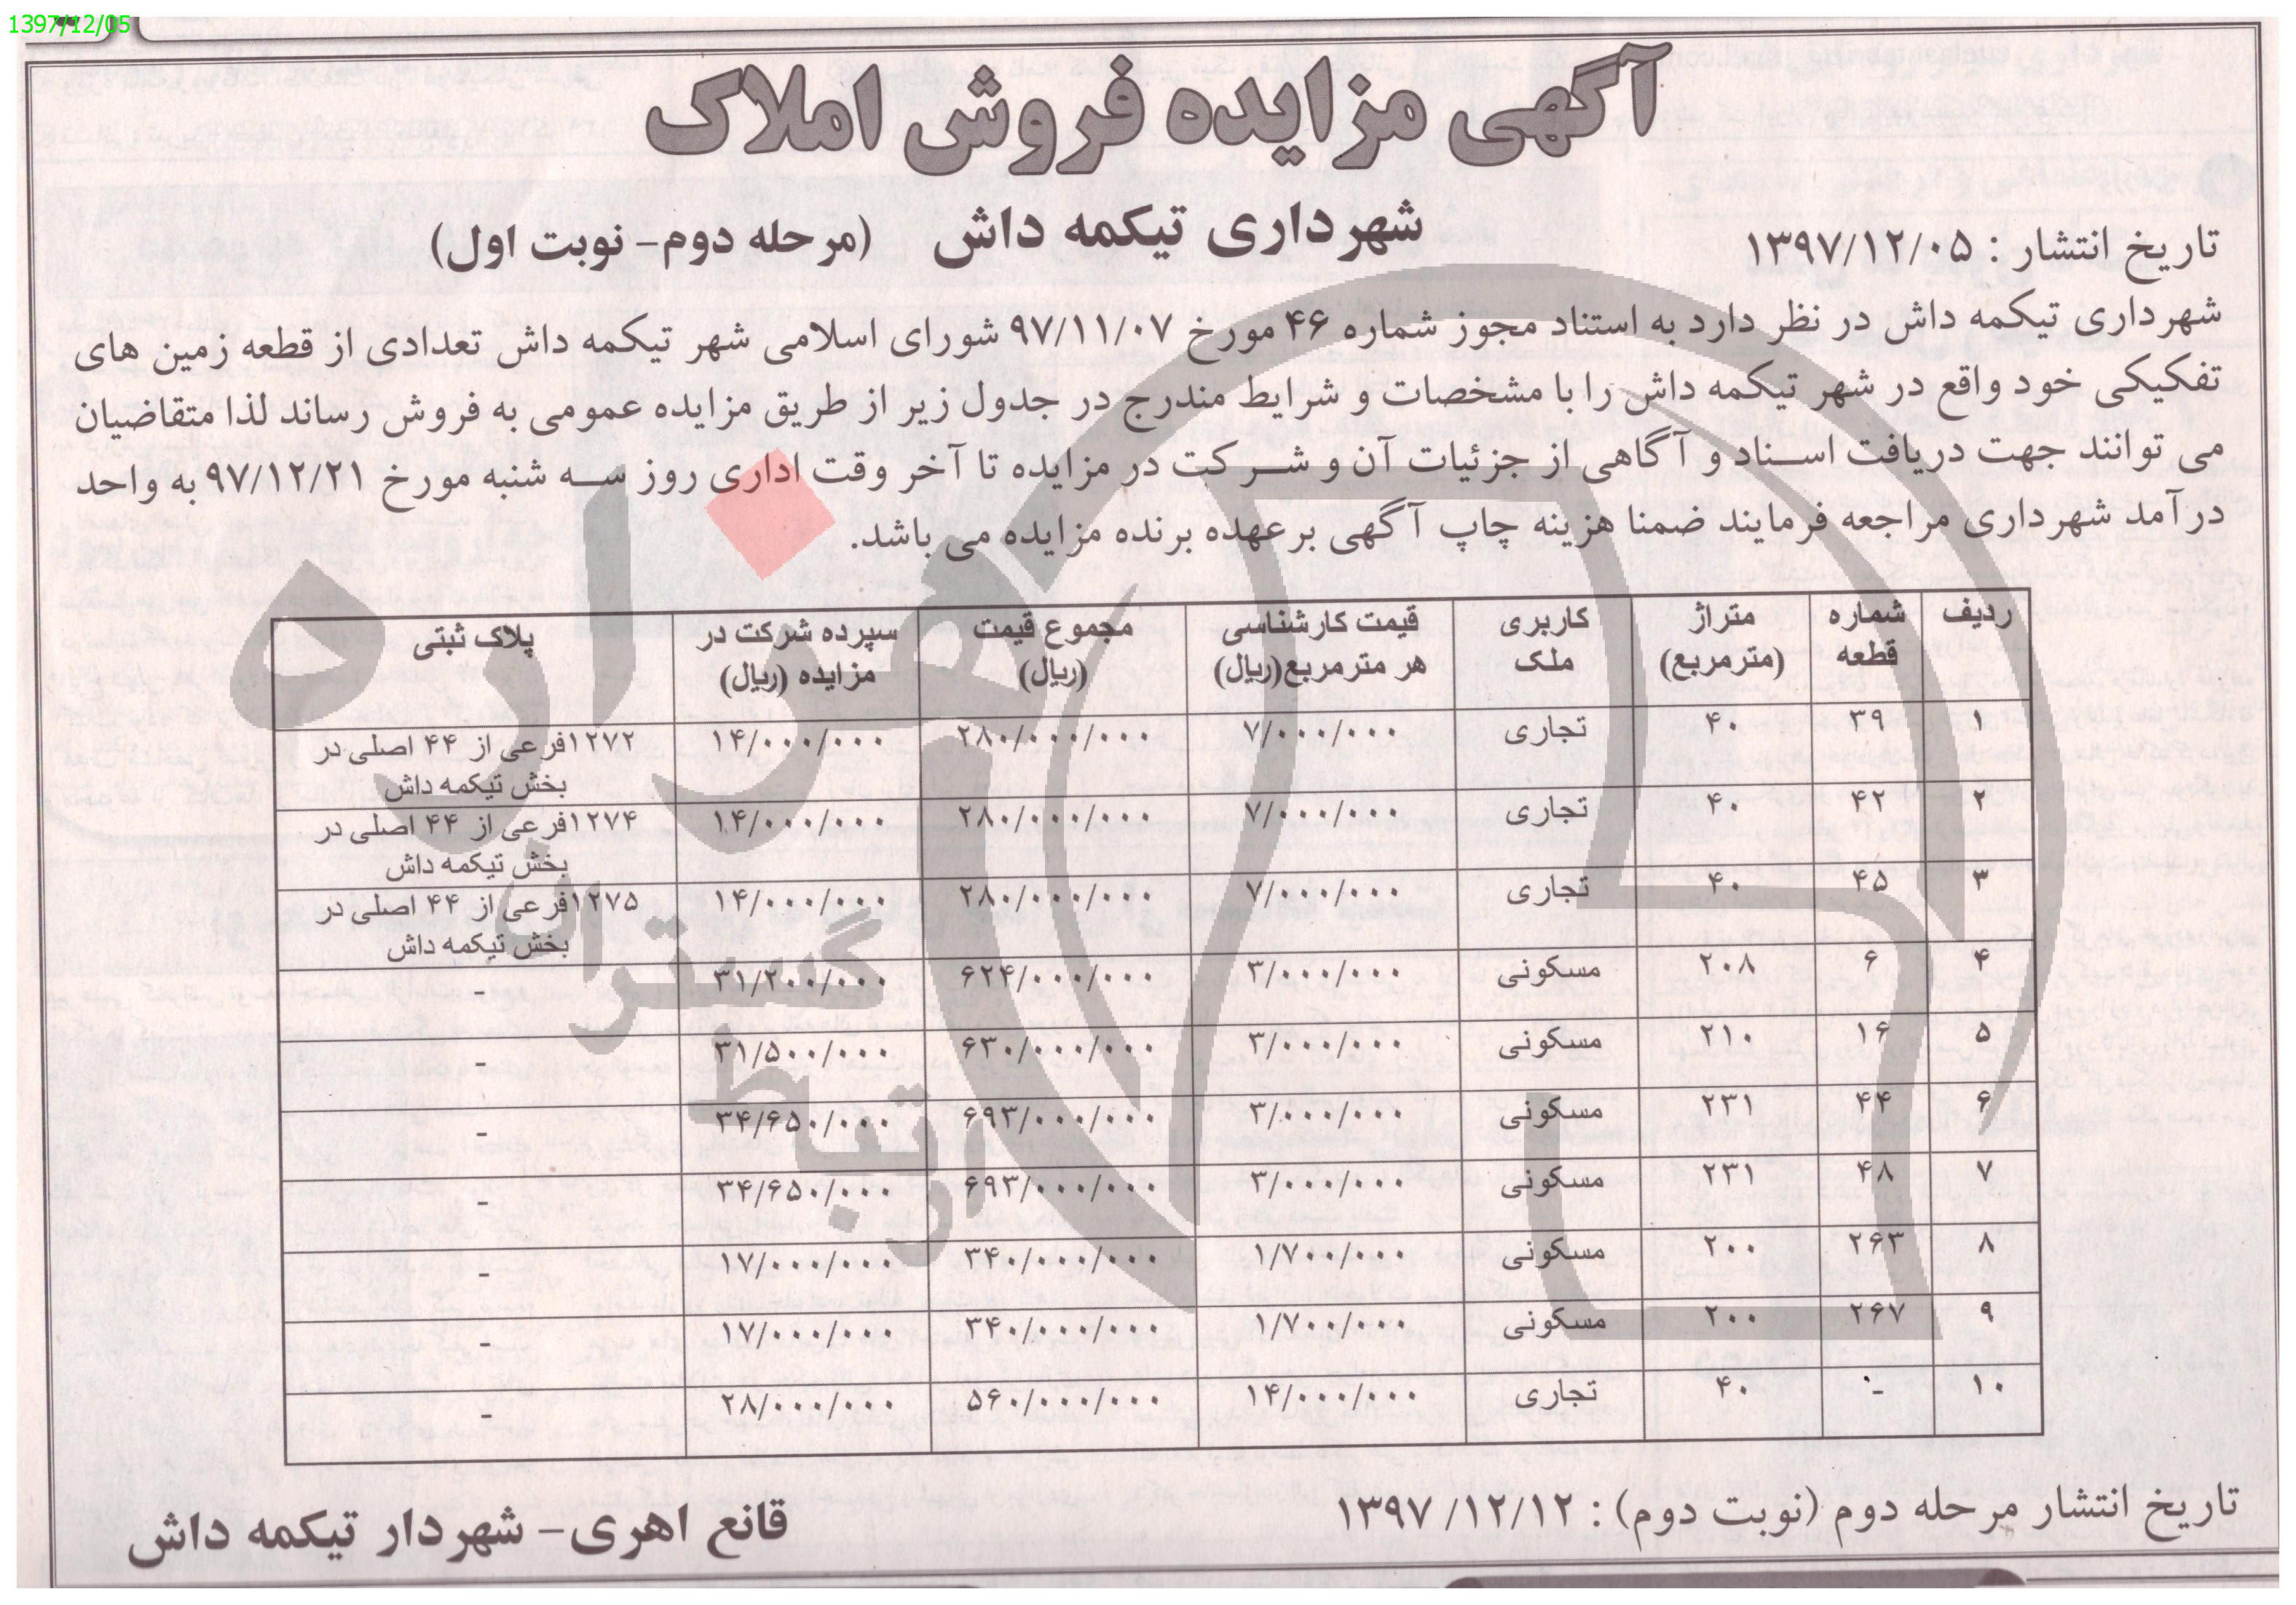 1397/12/05
آگهی مزایده فروش املاک
شهرداری تیکمه داش (مرحله دوم- نوبت اول)
تاریخ انتشار : ۱۳۹۷/۱۲/۰۵
شهرداری تیکمه داش در نظر دارد به استناد مجوز شماره ۴۶ مورخ ۹۷/۱۱/۰۷ شورای اسلامی شهر تیکمه داش تعدادی از قطعه زمین های
تفکیکی خود واقع در شهر تیکمه داش را با مشخصات و شرایط مندرج در جدول زیر از طریق مزایده عمومی به فروش رساند لذا متقاضیان
می توانند جهت دریافت اسناد و آگاهی از جزئیات آن و شرکت در مزایده تا آخر وقت اداری روز سه شنبه مورخ ۹۷/۱۲/۲۱ به واحد
درآمد شهرداری مراجعه فرمایند ضمنا هزینه چاپ آگهی برعهده برنده مزایده می باشد.
ردیف شماره قطعه متراژ (مترمربع) کاربری ملک قیمت کارشناسی هر مترمربع(ریال) مجموع قیمت (ریال) سپرده شرکت در مزایده (ریال) پلاک ثبتی
۱ ۳۹ ۴۰ تجاری ۷/۰۰۰/۰۰۰ ۲۸۰/۰۰۰/۰۰۰ ۱۴/۰۰۰/۰۰۰ ۱۲۷۲فرعی از ۴۴ اصلی در بخش تیکمه داش
۲ ۴۲ ۴۰ تجاری ۷/۰۰۰/۰۰۰ ۲۸۰/۰۰۰/۰۰۰ ۱۴/۰۰۰/۰۰۰ ۱۲۷۴فرعی از ۴۴ اصلی در بخش تیکمه داش
۳ ۴۵ ۴۰ تجاری ۷/۰۰۰/۰۰۰ ۲۸۰/۰۰۰/۰۰۰ ۱۴/۰۰۰/۰۰۰ ۱۲۷۵فرعی از ۴۴ اصلی در بخش تیکمه داش
۴ ۶ ۲۰۸ مسکونی ۳/۰۰۰/۰۰۰ ۶۲۴/۰۰۰/۰۰۰ ۳۱/۲۰۰/۰۰۰ -
۵ ۱۶ ۲۱۰ مسکونی ۳/۰۰۰/۰۰۰ ۶۳۰/۰۰۰/۰۰۰ ۳۱/۵۰۰/۰۰۰ -
۶ ۴۴ ۲۳۱ مسکونی ۳/۰۰۰/۰۰۰ ۶۹۳/۰۰۰/۰۰۰ ۳۴/۶۵۰/۰۰۰ -
۷ ۴۸ ۲۳۱ مسکونی ۳/۰۰۰/۰۰۰ ۶۹۳/۰۰۰/۰۰۰ ۳۴/۶۵۰/۰۰۰ -
۸ ۲۶۳ ۲۰۰ مسکونی ۱/۷۰۰/۰۰۰ ۳۴۰/۰۰۰/۰۰۰ ۱۷/۰۰۰/۰۰۰ -
۹ ۲۶۷ ۲۰۰ مسکونی ۱/۷۰۰/۰۰۰ ۳۴۰/۰۰۰/۰۰۰ ۱۷/۰۰۰/۰۰۰ -
۱۰ - ۴۰ تجاری ۱۴/۰۰۰/۰۰۰ ۵۶۰/۰۰۰/۰۰۰ ۲۸/۰۰۰/۰۰۰ -
تاریخ انتشار مرحله دوم (نوبت دوم) : ۱۳۹۷/۱۲/۱۲
قانع اهری- شهردار تیکمه داش
هزاره
گستران
ارتباط